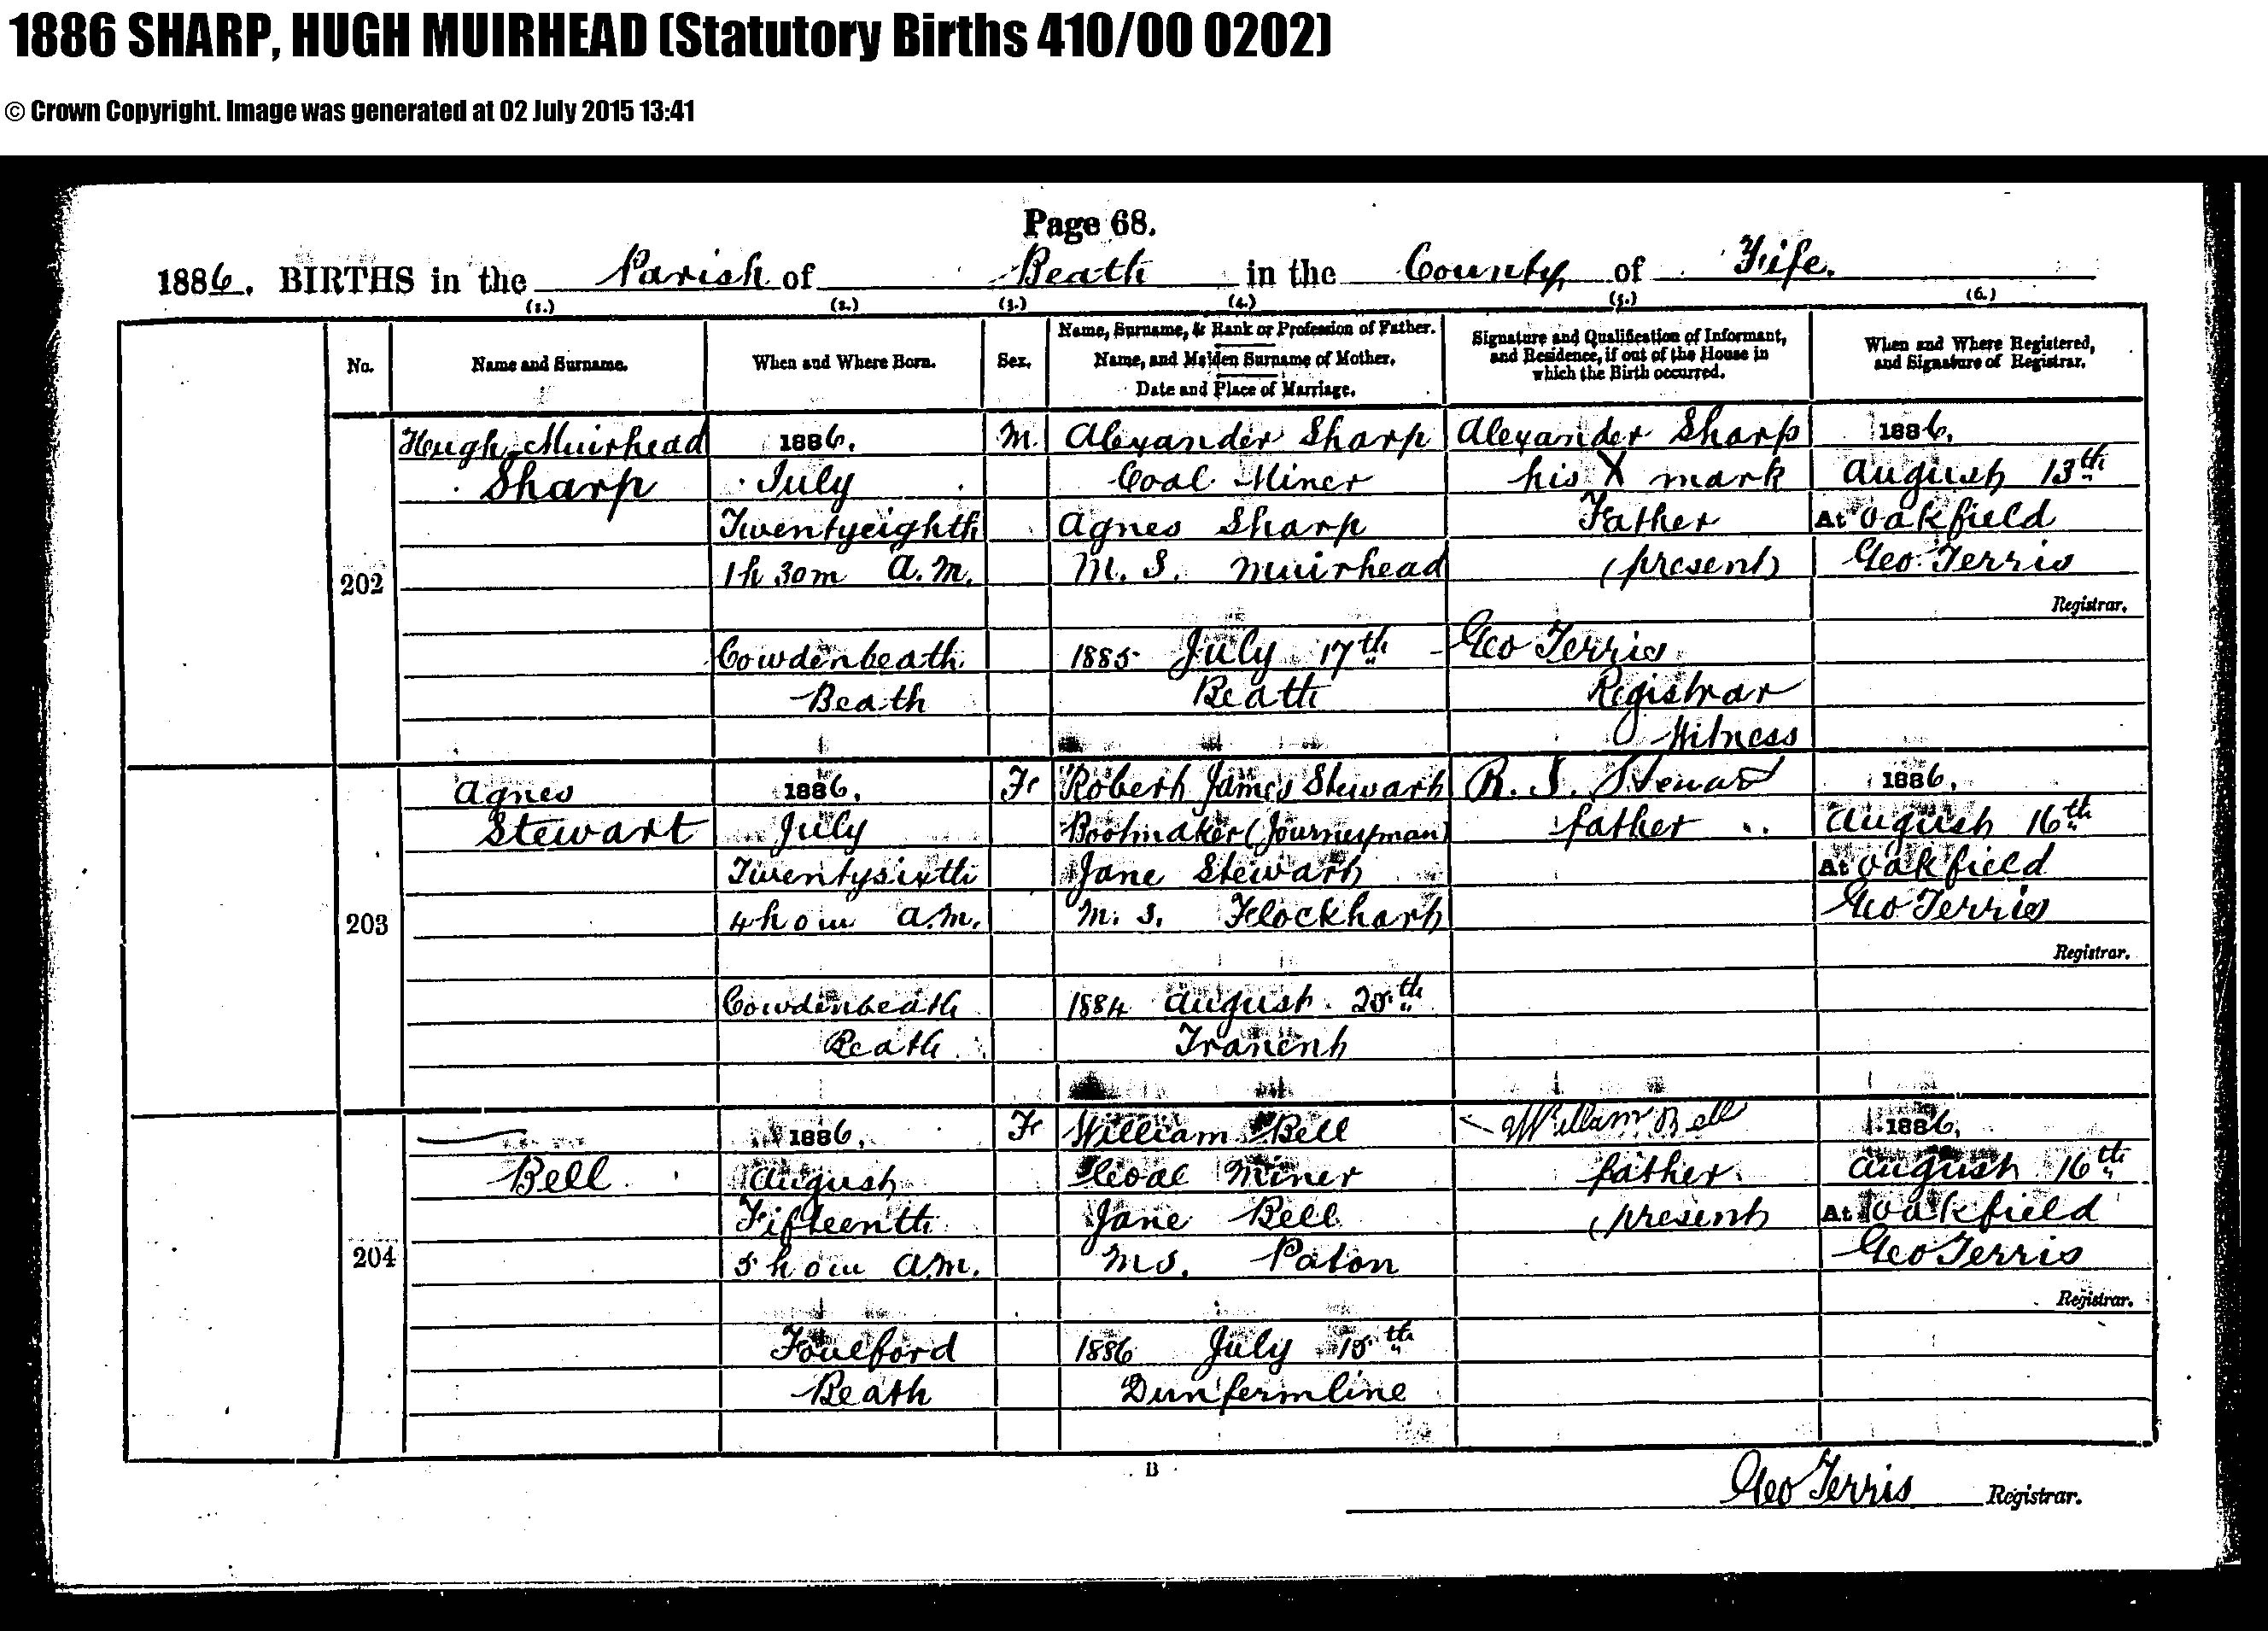 1886 SHARP, HUGH MUIRHEAD (Statutory Births 410/00 0202)
© Crown Copyright. Image was generated at 02 July 2015 13:41
Page 68.
1886. BIRTHS in the Parish of Beath in the County of Fife.
(1.) (2.) (3.) (4.) (5.) (6.)
No.
Name and Surname.
When and Where Born.
Sex.
Name, Surname, & Rank or Profession of Father.
Name, and Maiden Surname of Mother.
Date and Place of Marriage.
Signature and Qualification of Informant,
and Residence, if out of the House in
which the Birth occurred.
When and Where Registered,
and Signature of Registrar.
202
Hugh Muirhead
Sharp
1886.
July
Twentyeighth
1h 30m A.M.
Cowdenbeath
Beath
M.
Alexander Sharp
Coal Miner
Agnes Sharp
M.S. Muirhead
1885 July 17th
Beath
Alexander Sharp
his X mark
Father
(present)
Geo Terris
Registrar
Witness
1886.
August 13th
At Oakfield
Geo Terris
Registrar.
203
Agnes
Stewart
1886.
July
Twentysixth
4h 0m A.M.
Cowdenbeath
Beath
F
Robert James Stewart
Bootmaker (Journeyman)
Jane Stewart
M.S. Flockhart
1884 August 25th
Tranent
R. J. Stewart
father
1886.
August 16th
At Oakfield
Geo Terris
Registrar.
204
Bell
1886.
August
Fifteenth
5h 0m A.M.
Foulford
Beath
F
William Bell
Coal Miner
Jane Bell
M.S. Paton
1886 July 15th
Dunfermline
William Bell
father
(present)
1886.
August 16th
At Oakfield
Geo Terris
Registrar.
B
Geo Terris Registrar.